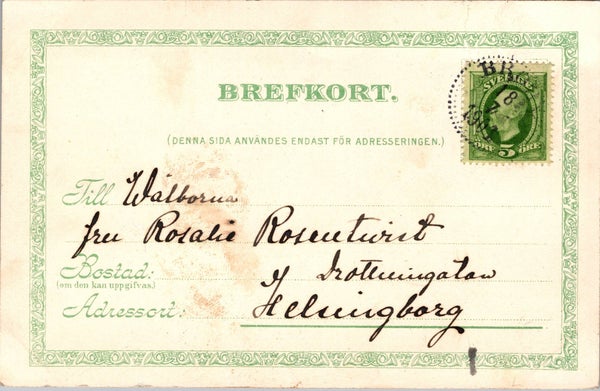 BREFKORT.
(DENNA SIDA ANVÄNDES ENDAST FÖR ADRESSERINGEN.)
SVERIGE
5
ÖRE ÖRE
Till Wälborna
fru Rosalie Rosentwist
Bostad: Drottninggatan
(om den kan uppgifvas.)
Adressort: Helsingborg